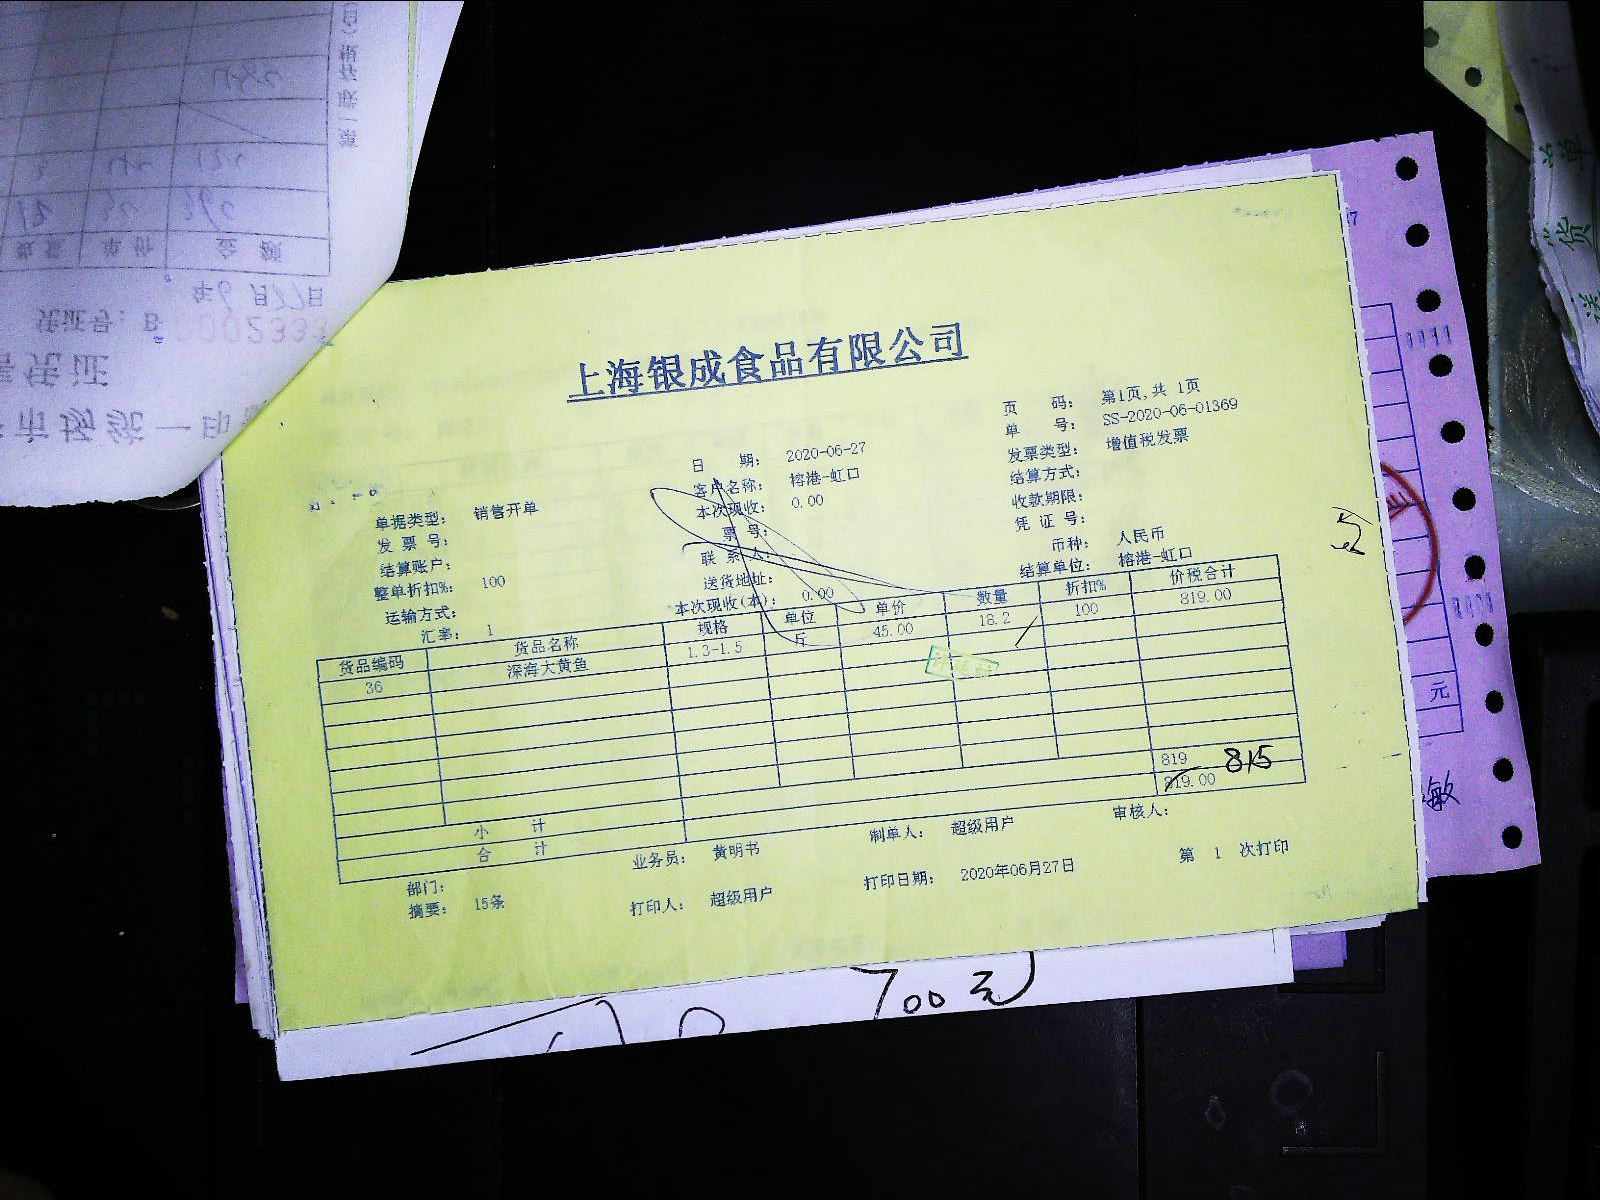 上海银成食品有限公司
页 码： 第1页,共 1页
单 号： SS-2020-06-01369
日 期： 2020-06-27
发票类型： 增值税发票
客户名称： 榕港-虹口
结算方式：
单据类型： 销售开单
本次现收： 0.00
收款期限：
发 票 号：
票 号：
凭 证 号：
结算账户：
联 系 人：
币种： 人民币
整单折扣%： 100
送货地址：
结算单位： 榕港-虹口
运输方式：
本次现收(本)： 0.00
汇率： 1
货品编码 货品名称 规格 单位 单价 数量 折扣% 价税合计
36 深海大黄鱼 1.3-1.5 斤 45.00 18.2 100 819.00
小 计 819
815
合 计 819.00
部门： 业务员： 黄明书 制单人： 超级用户 审核人：
摘要： 15条 打印人： 超级用户 打印日期： 2020年06月27日 第 1 次打印
700元
元
敏
第一联 存根
数量 单价 金额
年6月27日
凭证号：B 0002333
凭证
市场统一印
送货单